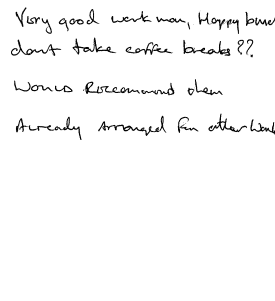 Very good work man, Happy
dont take coffee breaks??
Would Reccommend them
Already arranged for other Work